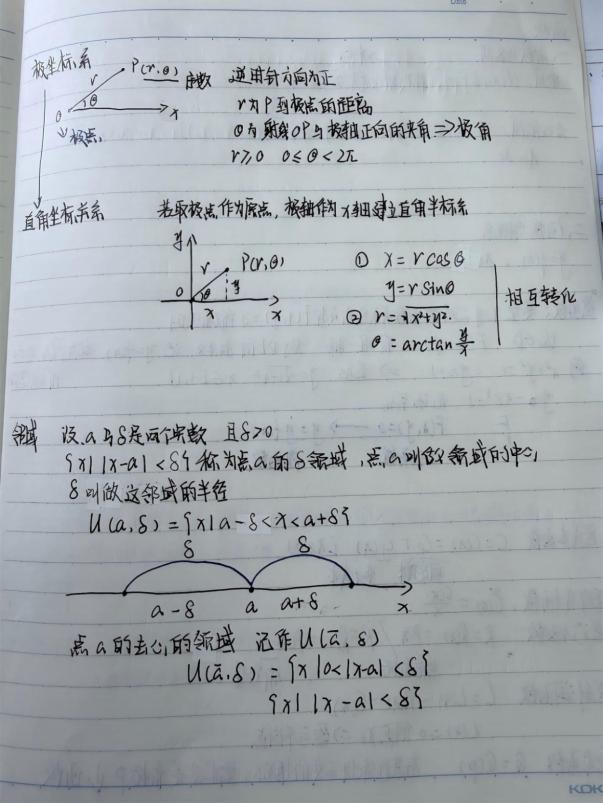 极坐标系
P(r,θ) 序数 逆时针方向为正
r θ O x
极点
r为P到极点的距离
θ为射线OP与极轴正向的夹角⇒极角
r≥0 0≤θ<2π
直角坐标系 若取极点作为原点，极轴作为x轴建立直角半标系
y
r P(r,θ)
O θ y
x x
① x=rcosθ
y=rsinθ
② r=√x²+y²
θ=arctan y/x
相互转化
邻域 设a与δ是两个实数 且δ>0
{x||x-a|<δ}称为点a的δ领域,点a叫做邻域的中心,
δ叫做这邻域的半径
U(a,δ)={x|a-δ<x<a+δ}
δ δ
a-δ a a+δ x
点a的去心的领域 记作U(a̅,δ)
U(a̅,δ)={x|0<|x-a|<δ}
{x||x-a|<δ}
KOK